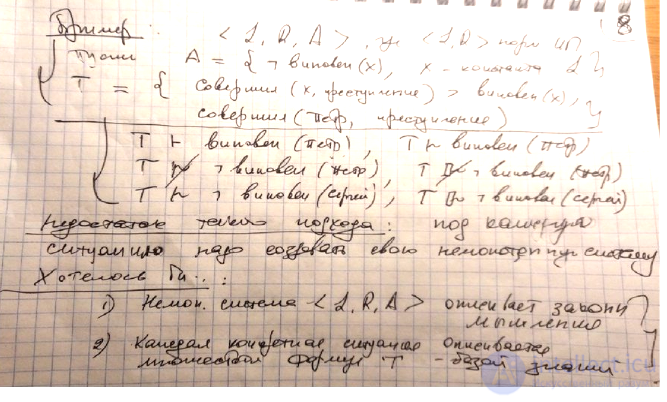 8
Пример: <L, R, A>, где <L, R>
Пусть A = { ¬ виновен (x), x - константа L }
T = { совершил (x, преступление) ⊃ виновен (x),
совершил (Петр, преступление) }
T ⊢ виновен (Петр), T ⊢ виновен (Петр)
T ⊬ ¬ виновен (Петр), T ⊬ ¬ виновен (Петр)
T ⊢ ¬ виновен (Сергей), T ⊬ ¬ виновен (Сергей)
Недостаток такого подхода: под каждую
ситуацию надо создавать свою немонотонную систему
Хотелось бы:
1) Немон. система <L, R, A> описывает законы
мышления
2) Каждая конкретная ситуация описывается
множеством формул T - базой знаний
intellect.icu